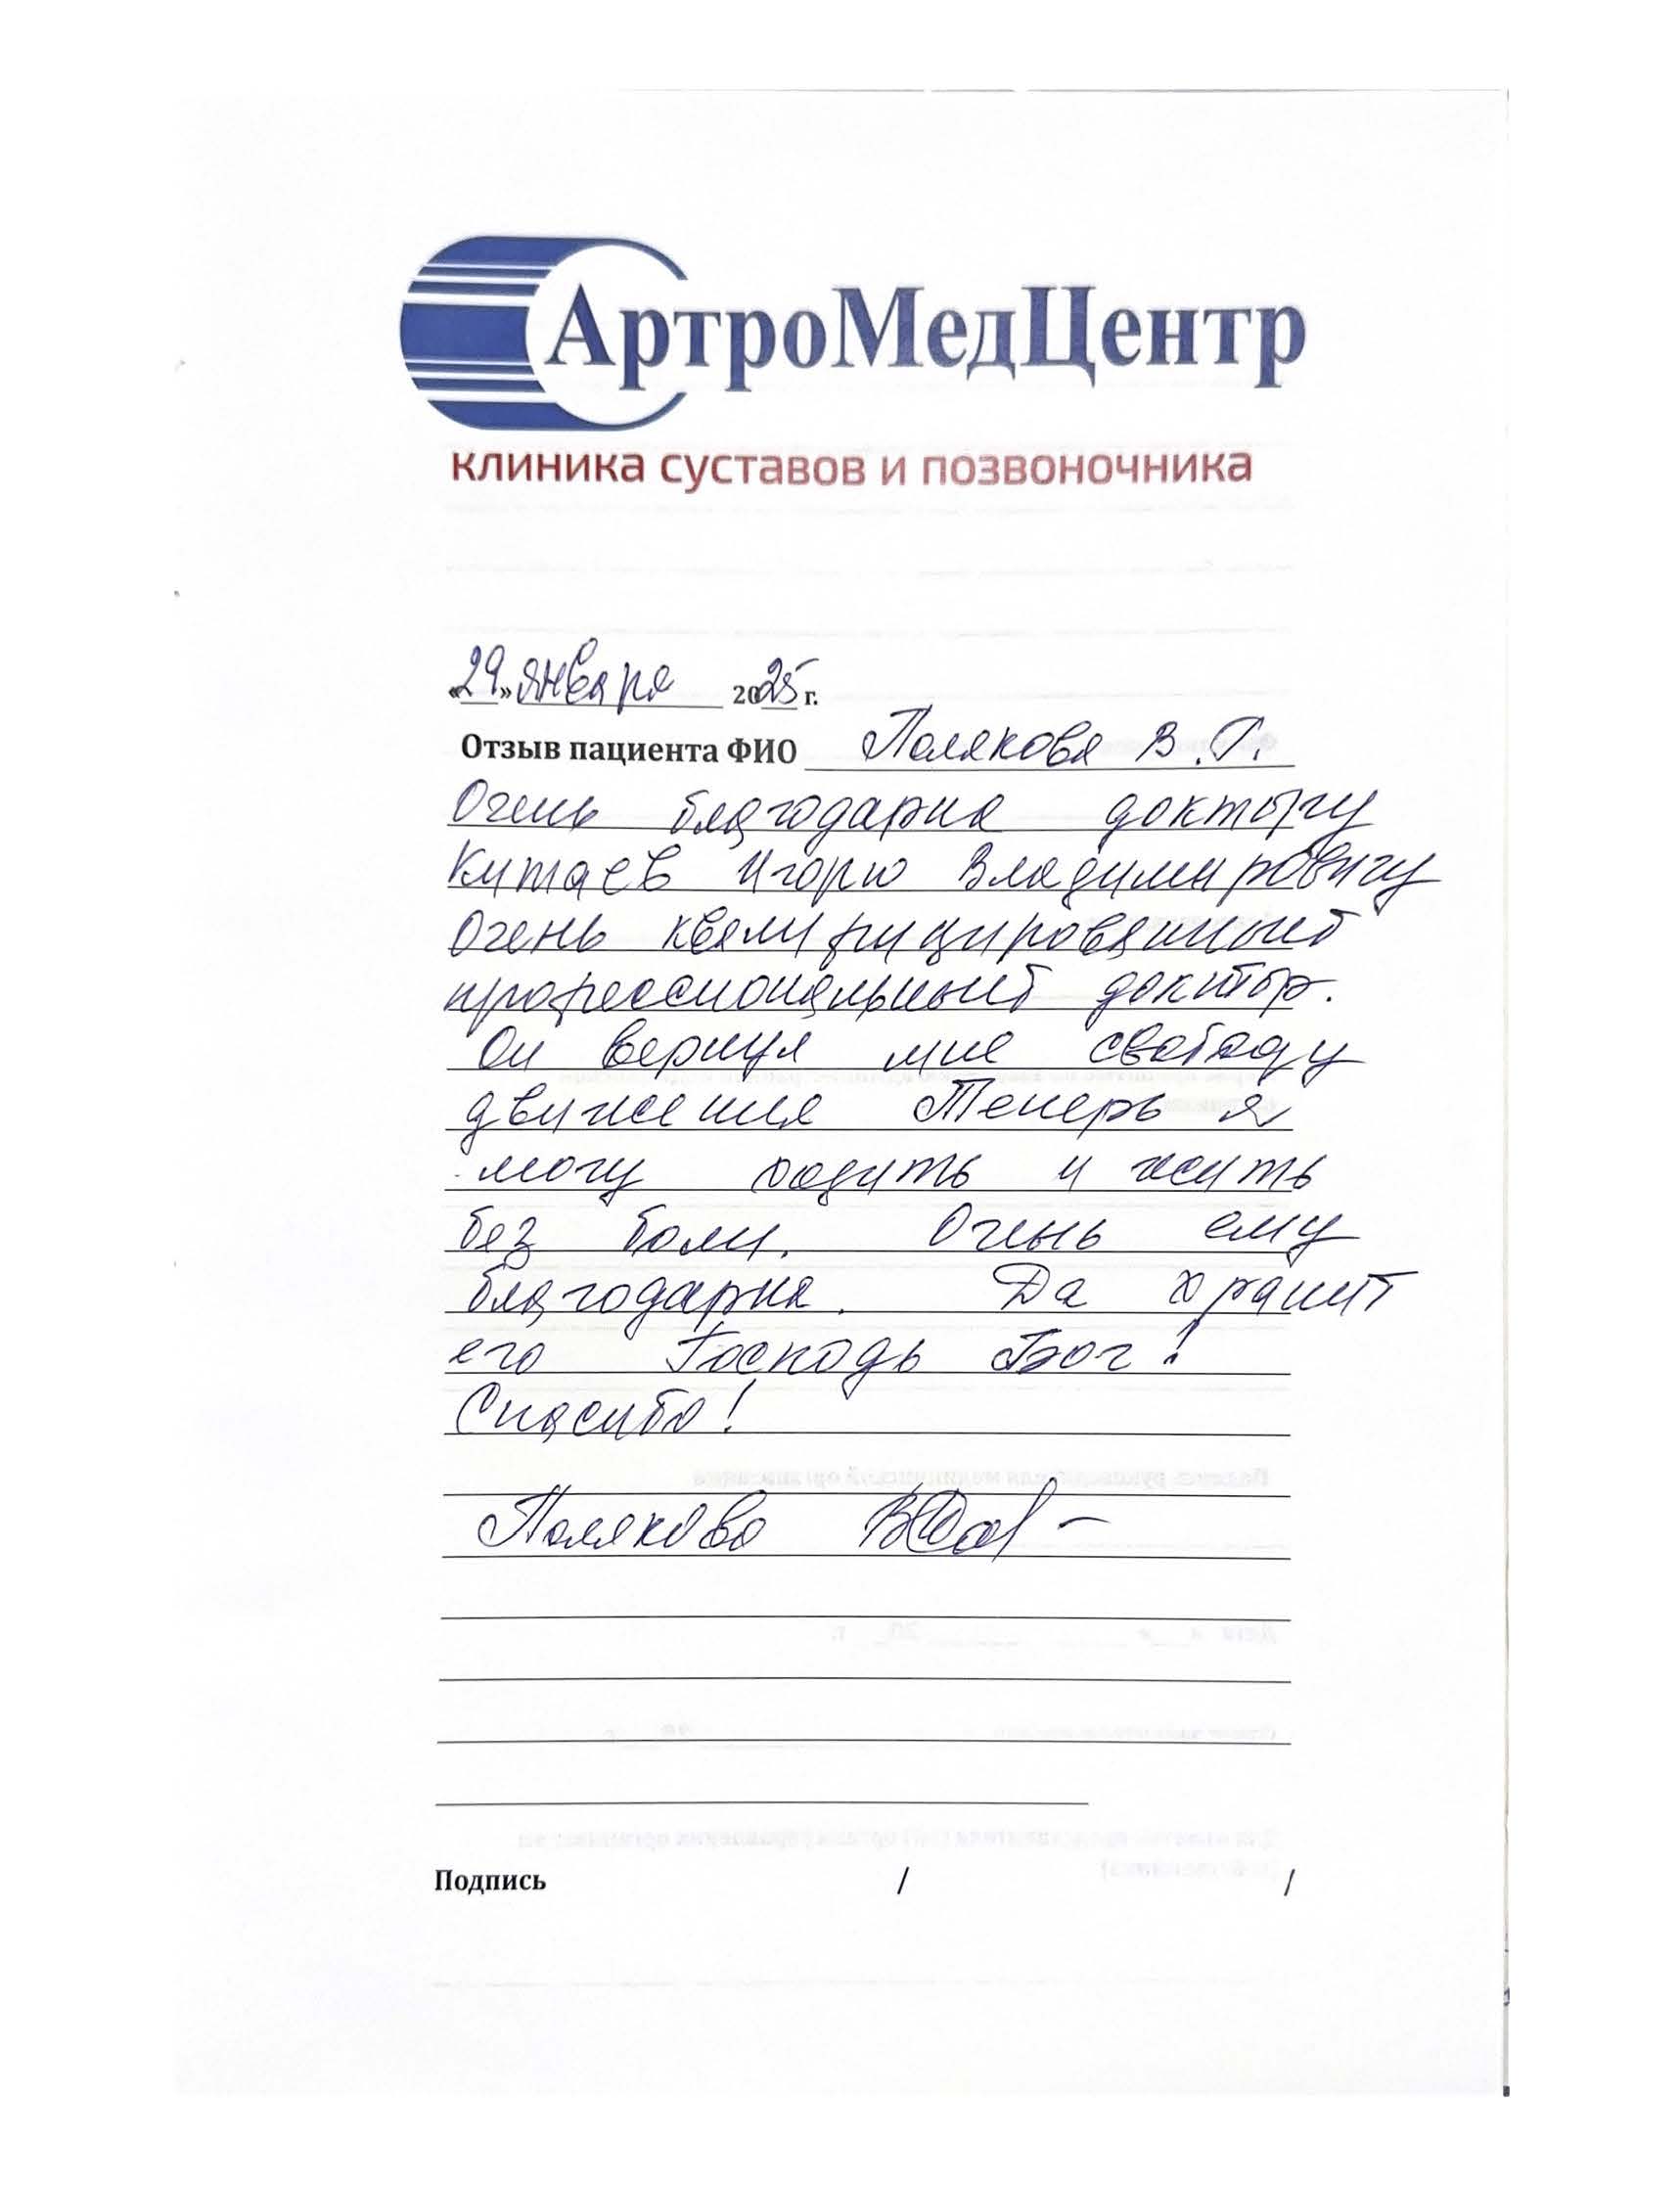 АртроМедЦентр
клиника суставов и позвоночника
«29» января 2025 г.
Отзыв пациента ФИО Полякова В.Г.
Очень благодарна доктору
Китаев Игорю Владимировичу
Очень квалифицированный
профессиональный доктор.
Он вернул мне свободу
движения Теперь я
могу ходить и жить
без боли. Очень ему
благодарна. Да хранит
его Господь Бог!
Спасибо!
Полякова
Подпись / /